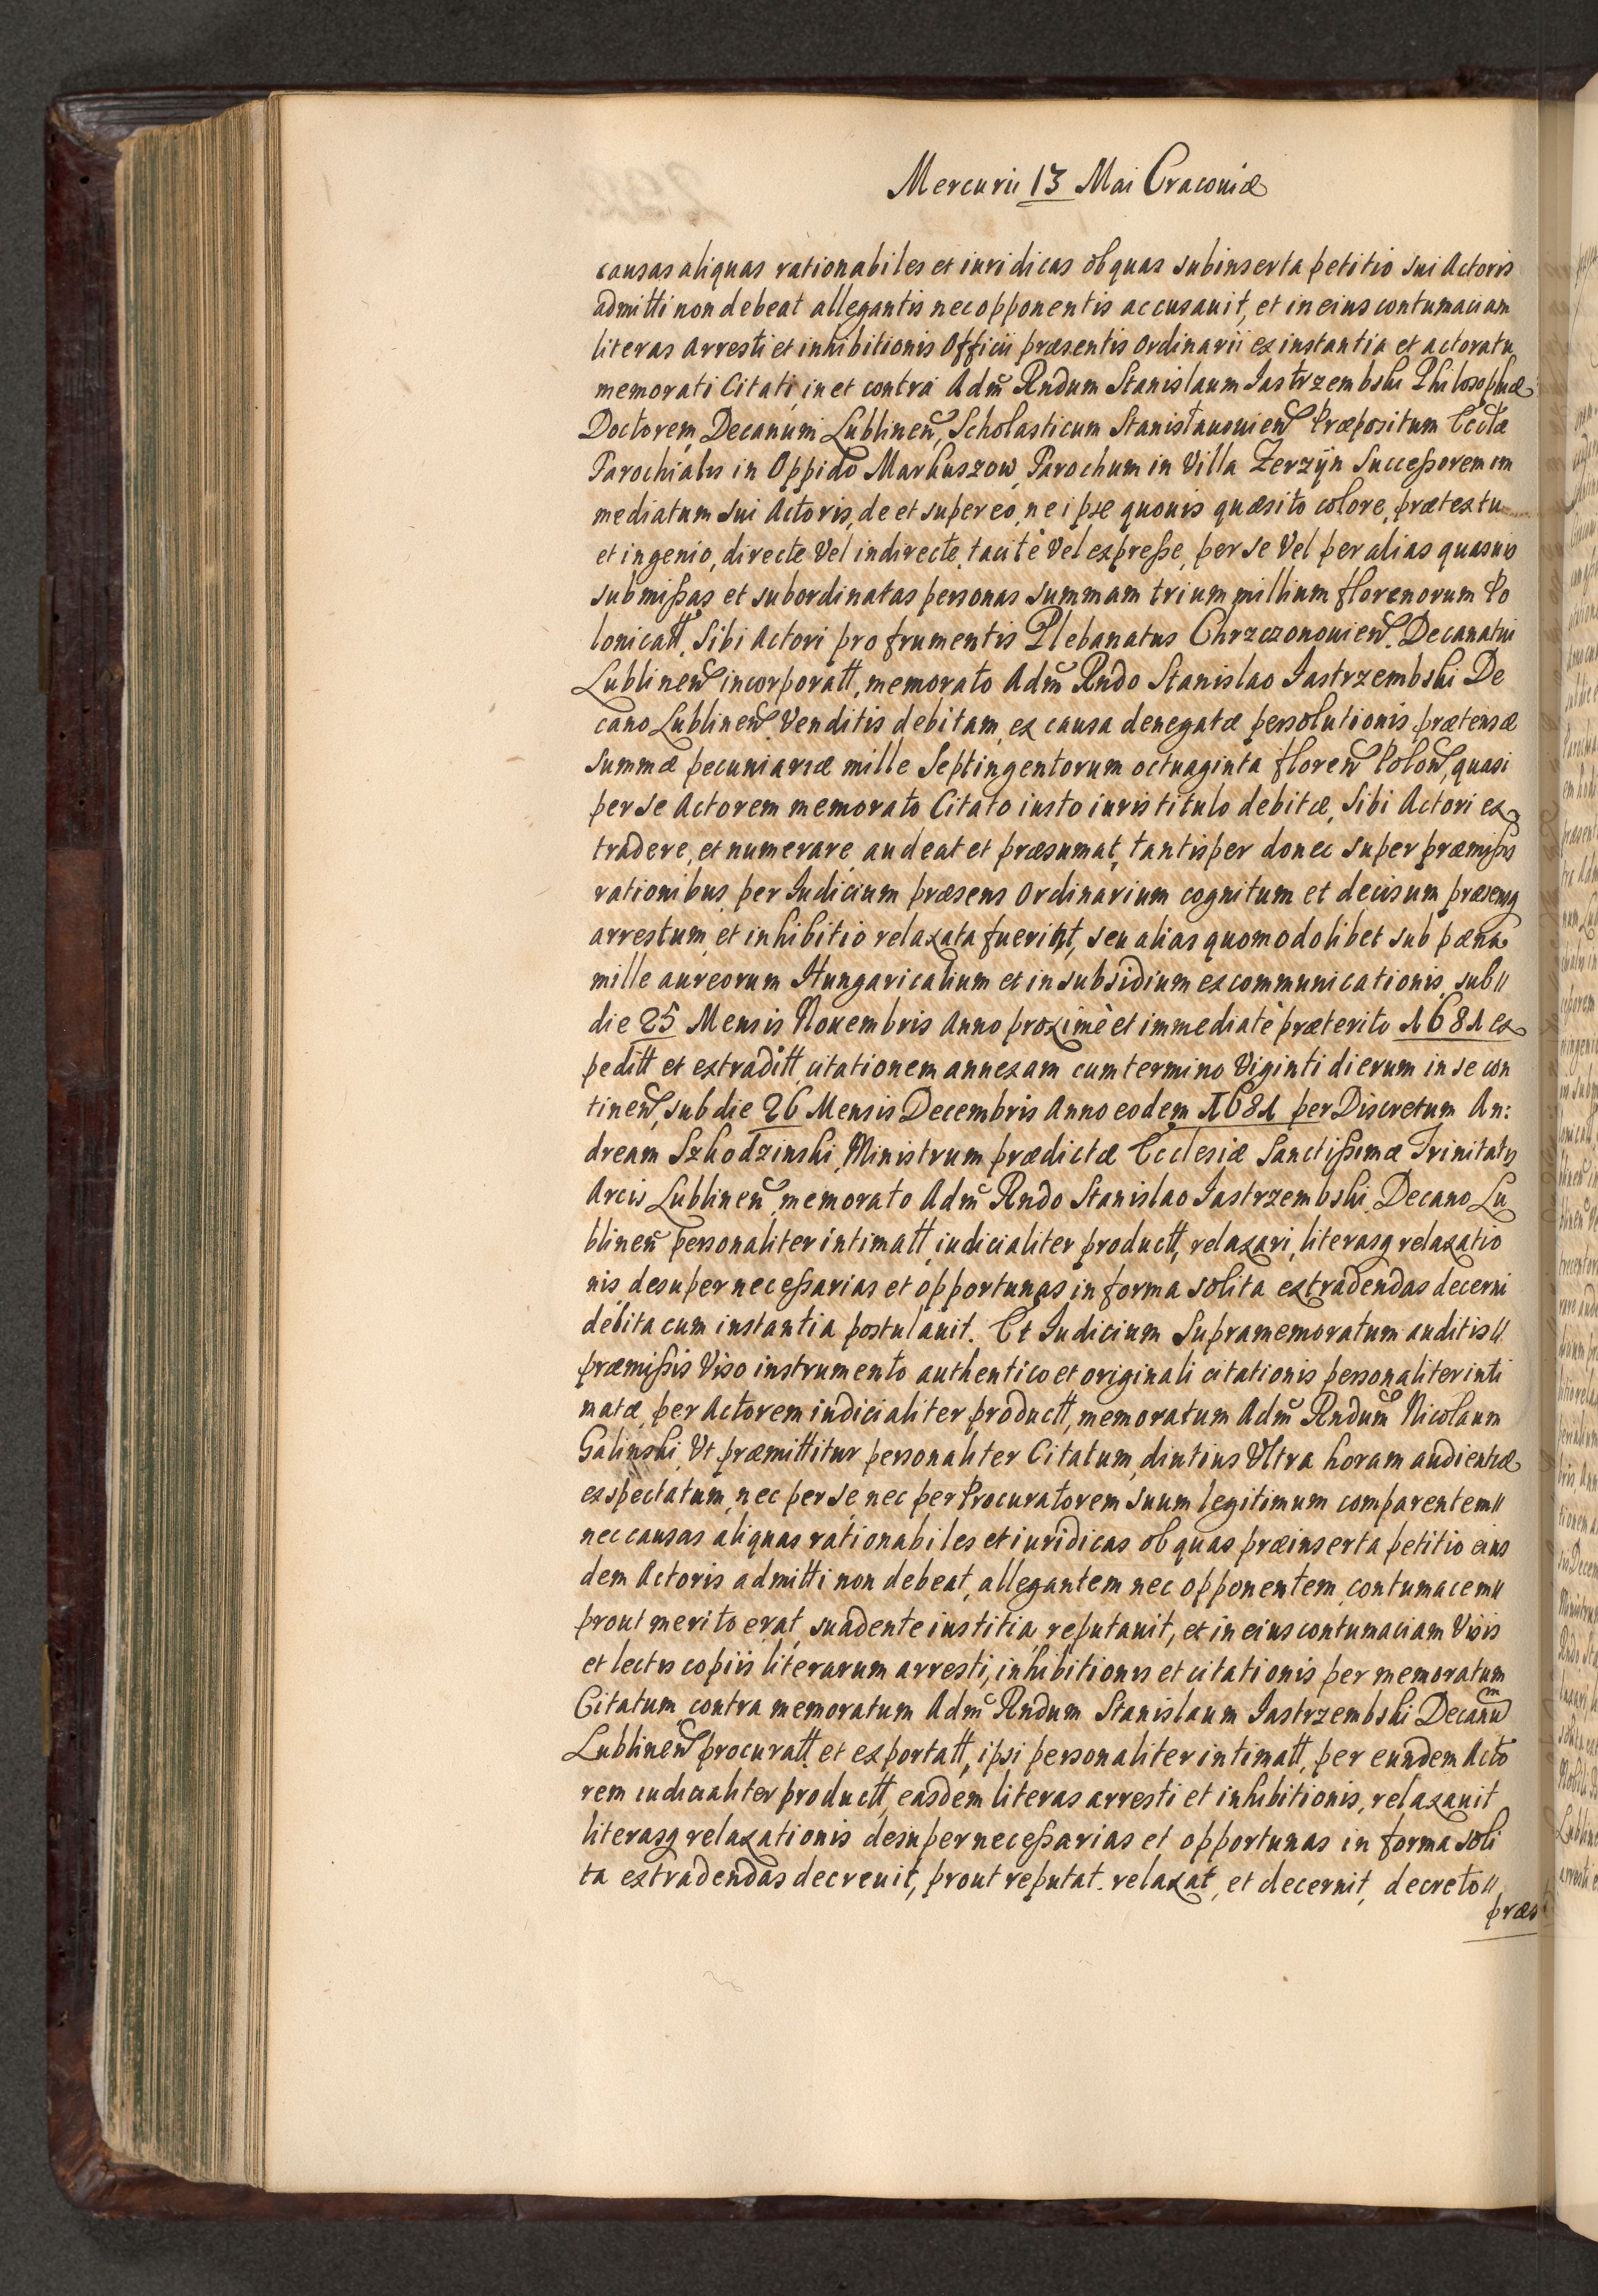 Mercurii 13 Mai Cracouiæ
causas aliquas rationabiles et iuridicas ob quas subinserta petitio sui Actoris
admitti non debeat allegantis nec opponentis accusauit, et in eius contumaciam
literas Arresti et inhibitionis Officii præsentis Ordinarii ex instantia et actoratu
memorati Citati, in et contra Adm̃ Rndum Stanislaum Jastrzembski Philosophiæ
Doctorem, Decanum Lublineñ, Scholasticum Stanisłauouieñ Præpositum Eccłæ
Parochialis in Oppido Markuszow, Parochum in Villa Zerzÿn Sucessorem im
mediatum sui Actoris, de et super eo, ne ipse quouis quæsito colore, prætextu
et ingenio, directe Vel indirecte, tacitè Vel expresse, per se Vel per alias quasuis
submissas et subordinatas personas summam trium millium florenorum Po
lonicatt, Sibi Actori pro frumentis Plebanatus Chrzczonouieñ. Decanatui
Lublineñ incorporatt, memorato Adm̃ Rndo Stanislao Jastrzembski De
cano Lublineñ Venditis debitam, ex causa denegatæ persolutionis prætensæ
summæ pecuniariæ mille Septingentorum octuaginta floreñ Poloñ, quasi
per se Actorem memorato Citato iusto iuris titulo debitæ, Sibi Actori ex
tradere, et numerare, audeat et præsumat, tantisper donec super præmissis
rationibus per Iudicium præsens Ordinarium cognitum et decisum præsensq
arrestum et inhibitio relaxata fuerint, seu alias quomodolibet sub pæna
mille aureorum Hungaricalium et in subsidium excommunicationis, sub〃
die 25 Mensis Nouembris Anno proximè et immediatè præterito 1681 ex
peditt et extraditt citationem annexam cum termino Viginti dierum in se con
tineñ, sub die 26 Mensis Decembris Anno eodem 1681 per Discretum An:
dream Szkodzinski, Ministrum prædictæ Ecclesiæ Sanctissimæ Trinitatis
Arcis Lublineñ, memorato Adm̃ Rndo Stanislao Jastrzembski Decano Lu
blineñ personaliter intimatt, iudicialiter productt, relaxari, literasq relaxatio
nis desuper necessarias et opportunas in forma solita extradendas decerni
debita cum instantia postulauit. Et Iudicium Supramemoratum auditis〃
præmissis Viso instrumento authentico et originali citationis personaliter inti
matæ, per Actorem iudicialiter productt, memoratum Adm̃ Rndum Nicolaum
Galinski, Vt præmittitur personaliter Citatum, diutius Vltra horam audientiæ
exspectatum, nec per se, nec per Procuratorem suum legitimum comparentem〃
nec causas aliquas rationabiles et iuridicas ob quas præinserta petitio eius
dem Actoris admitti non debeat, allegantem nec opponentem, contumacem〃
prout merito erat, suadente iustitia, reputauit, et in eius contumaciam Visis
et lectis copiis literarum arresti, inhibitionis et citationis per memoratum
Citatum, contra memoratum Adm̃ Rndum Stanislaum Jastrzembski Decanum
Lublineñ procuratt et exportatt, ipsi personaliter intimatt, per eundem Acto
rem iudicialiter productt, easdem literas arresti et inhibitionis, relaxauit
literasq relaxationis desuper necessarias et opportunas in forma soli
ta extradendas decreuit, prout reputat. relaxat, et decernit, decreto〃
præs